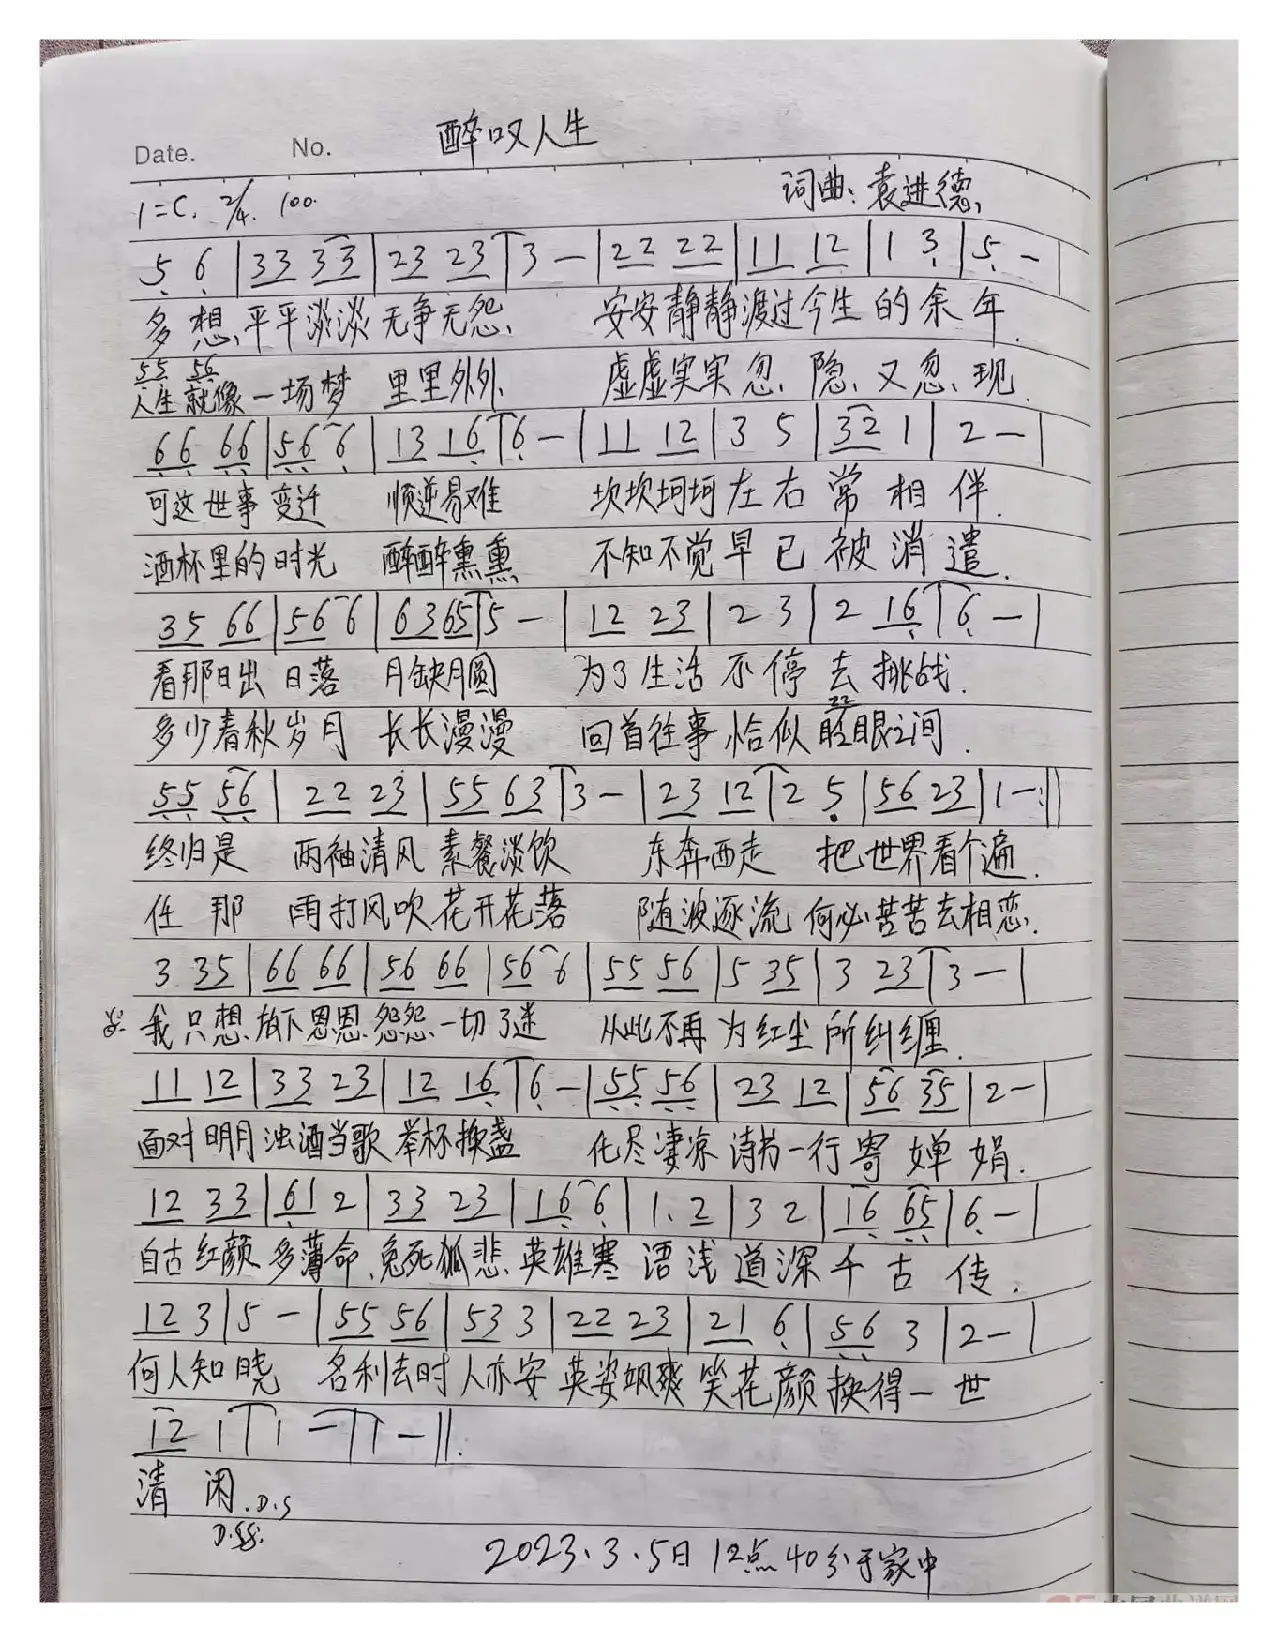 Date. No. 醉叹人生
1=C. 2/4. 100.
词曲:袁进德
5 6 | 33 33 | 23 23 | 3 — | 22 22 | 11 12 | 1 3 | 5 — |
多想,平平淡淡无争无怨、 安安静静渡过今生的余年.
55 56
人生就像一场梦 里里外外、 虚虚实实忽、隐、又忽、现
66 66 | 56 6 | 13 16 | 6 — | 11 12 | 3 5 | 32 1 | 2 — |
可这世事变迁 顺逆易难 坎坎坷坷左右常相伴.
酒杯里的时光 醉醉熏熏 不知不觉早已被消遣.
35 66 | 56 6 | 6365 | 5 — | 12 23 | 2 3 | 2 16 | 6 — |
看那日出日落 月缺月圆 为了生活不停去挑战.
22
多少春秋岁月 长长漫漫 回首往事恰似眨眼之间.
55 56 | 22 23 | 55 63 | 3 — | 23 12 | 2 5 | 56 23 | 1 — :||
终归是 两袖清风素餐淡饮 东奔西走 把世界看个遍.
任那 雨打风吹花开花落 随波逐流何必苦苦去相恋.
3 35 | 66 66 | 56 66 | 56 6 | 55 56 | 5 35 | 3 23 | 3 — |
我只想放下恩恩怨怨一切了迷 从此不再为红尘所纠缠.
11 12 | 33 23 | 12 16 | 6 — | 55 56 | 23 12 | 56 35 | 2 — |
面对明月浊酒当歌举杯换盏 化尽凄凉诗书一行寄婵娟.
12 33 | 61 2 | 33 23 | 16 6 | 1. 2 | 3 2 | 16 65 | 6 — |
自古红颜多薄命、兔死狐悲英雄寒语浅道深千古传.
12 3 | 5 — | 55 56 | 53 3 | 22 23 | 21 6 | 56 3 | 2 — |
何人知晓 名利去时人亦安英姿飒爽笑花颜换得一世
12 1 | 1 — | 1 — ||.
清闲.D.S
D.SS.
2023.3.5日12点40分于家中